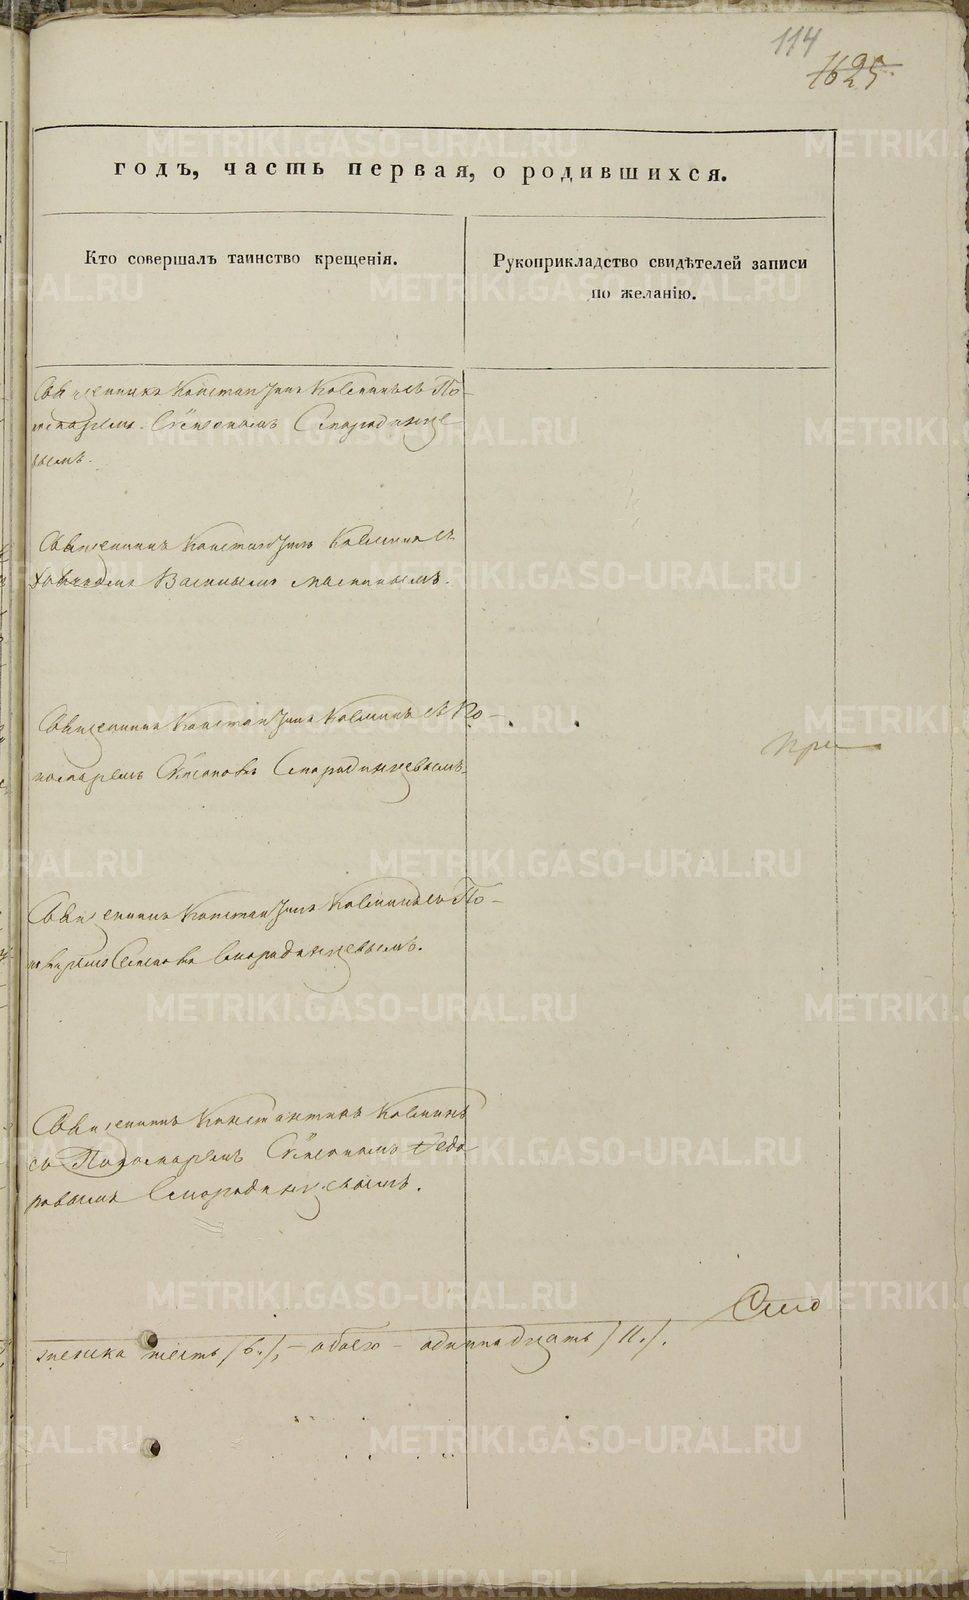 114
1625
годъ, часть первая, о родившихся.
Кто совершалъ таинство крещенія.
Рукоприкладство свидѣтелей записи
по желанію.
Священникъ Константинъ Калининъ съ По-
номаремъ Стефаномъ Смородинце-
вымъ.
Священникъ Константинъ Калининъ съ
Василіемъ
Священникъ Константинъ Калининъ съ По-
номаремъ Смородинцевымъ
при
Священникъ Константинъ Калининъ съ По-
номаремъ Смородинцевымъ.
Священникъ Константинъ Калининъ
съ Пономаремъ Стефаномъ Ѳедо-
ровымъ Смородинцевымъ.
женска шесть /6./, – обоего – одиннадцать /11./.
METRIKI.GASO-URAL.RU